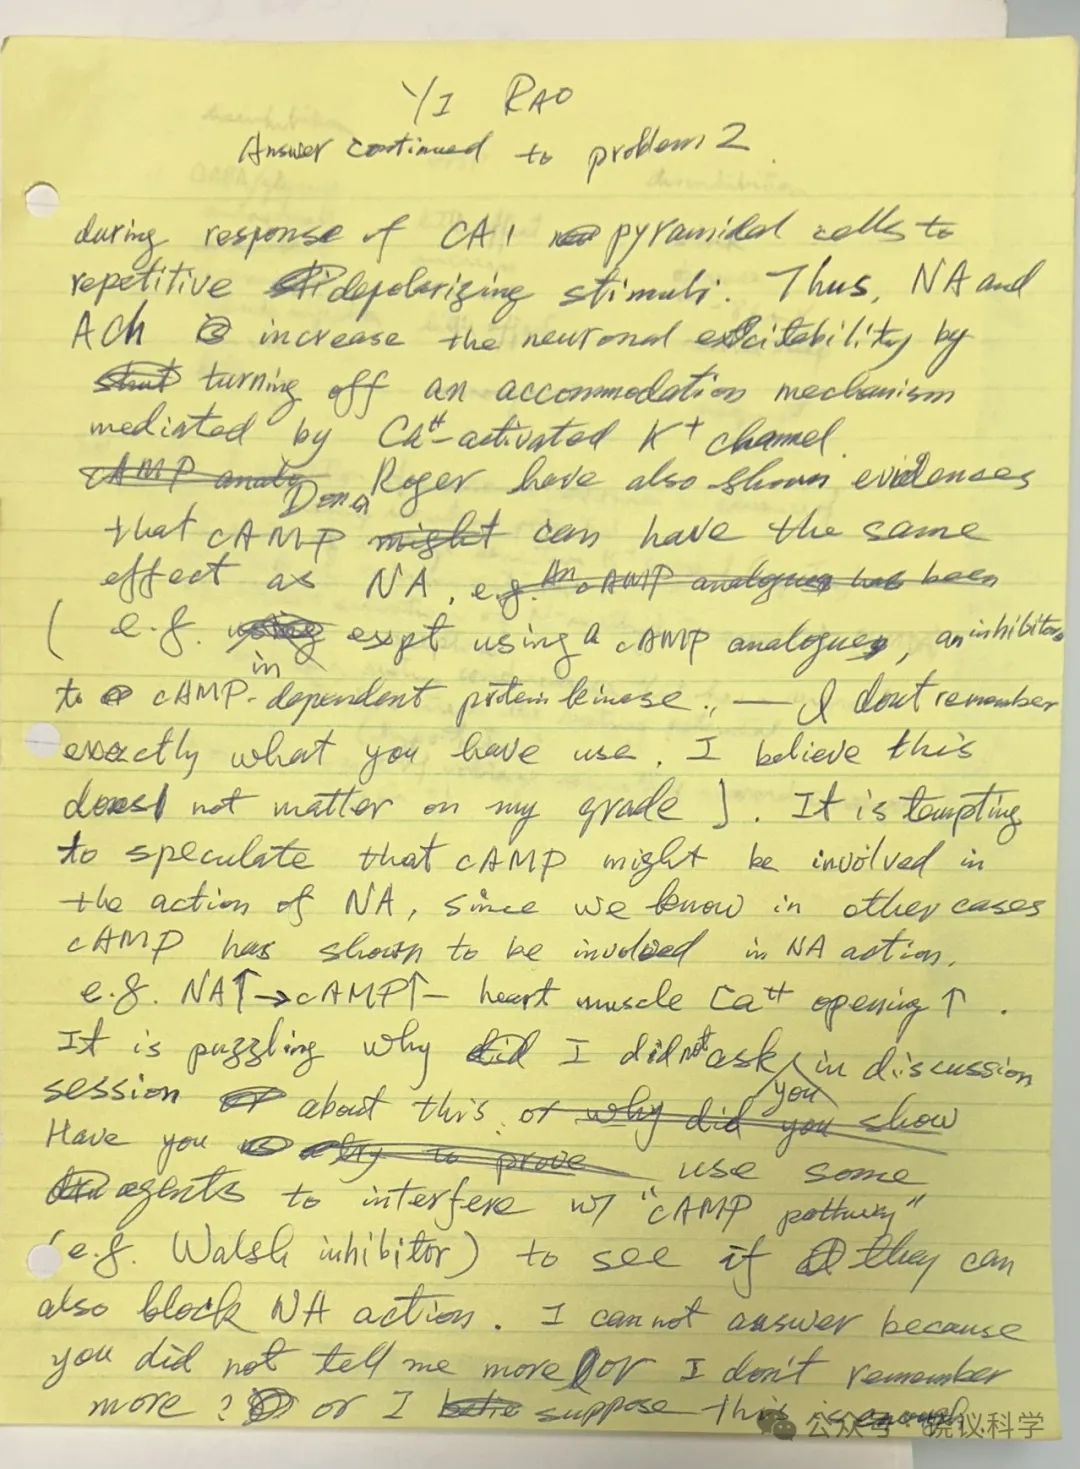 YI RAO
Answer continued to problem 2
during response of CA1 pyramidal cells to
repetitive depolarizing stimuli. Thus, NA and
ACh increase the neuronal excitability by
shut turning off an accommodation mechanism
mediated by Ca⁺⁺-activated K⁺ channel.
cAMP analog Dona Roger have also shown evidences
that cAMP might can have the same
effect as NA, e.g. An cAMP analogues has been
( e.g. using expt using a cAMP analogues, an inhibitor
in
to cAMP-dependent protein kinase., — I dont remember
exactly what you have use, I believe this
does not matter on my grade ]. It is tempting
to speculate that cAMP might be involved in
the action of NA, since we know in other cases
cAMP has shown to be involved in NA action,
e.g. NA↑→cAMP↑— heart muscle Ca⁺⁺ opening ↑ .
It is puzzling why did I did not ask you in discussion
session about this. or why did you show
Have you try to prove use some
agents to interfere w/ "cAMP pathway"
(e.g. Walsh inhibitor) to see if they can
also block NA action. I can not answer because
you did not tell me more, or I don't remember
more ? or I suppose this is enough.
公众号·饶议科学